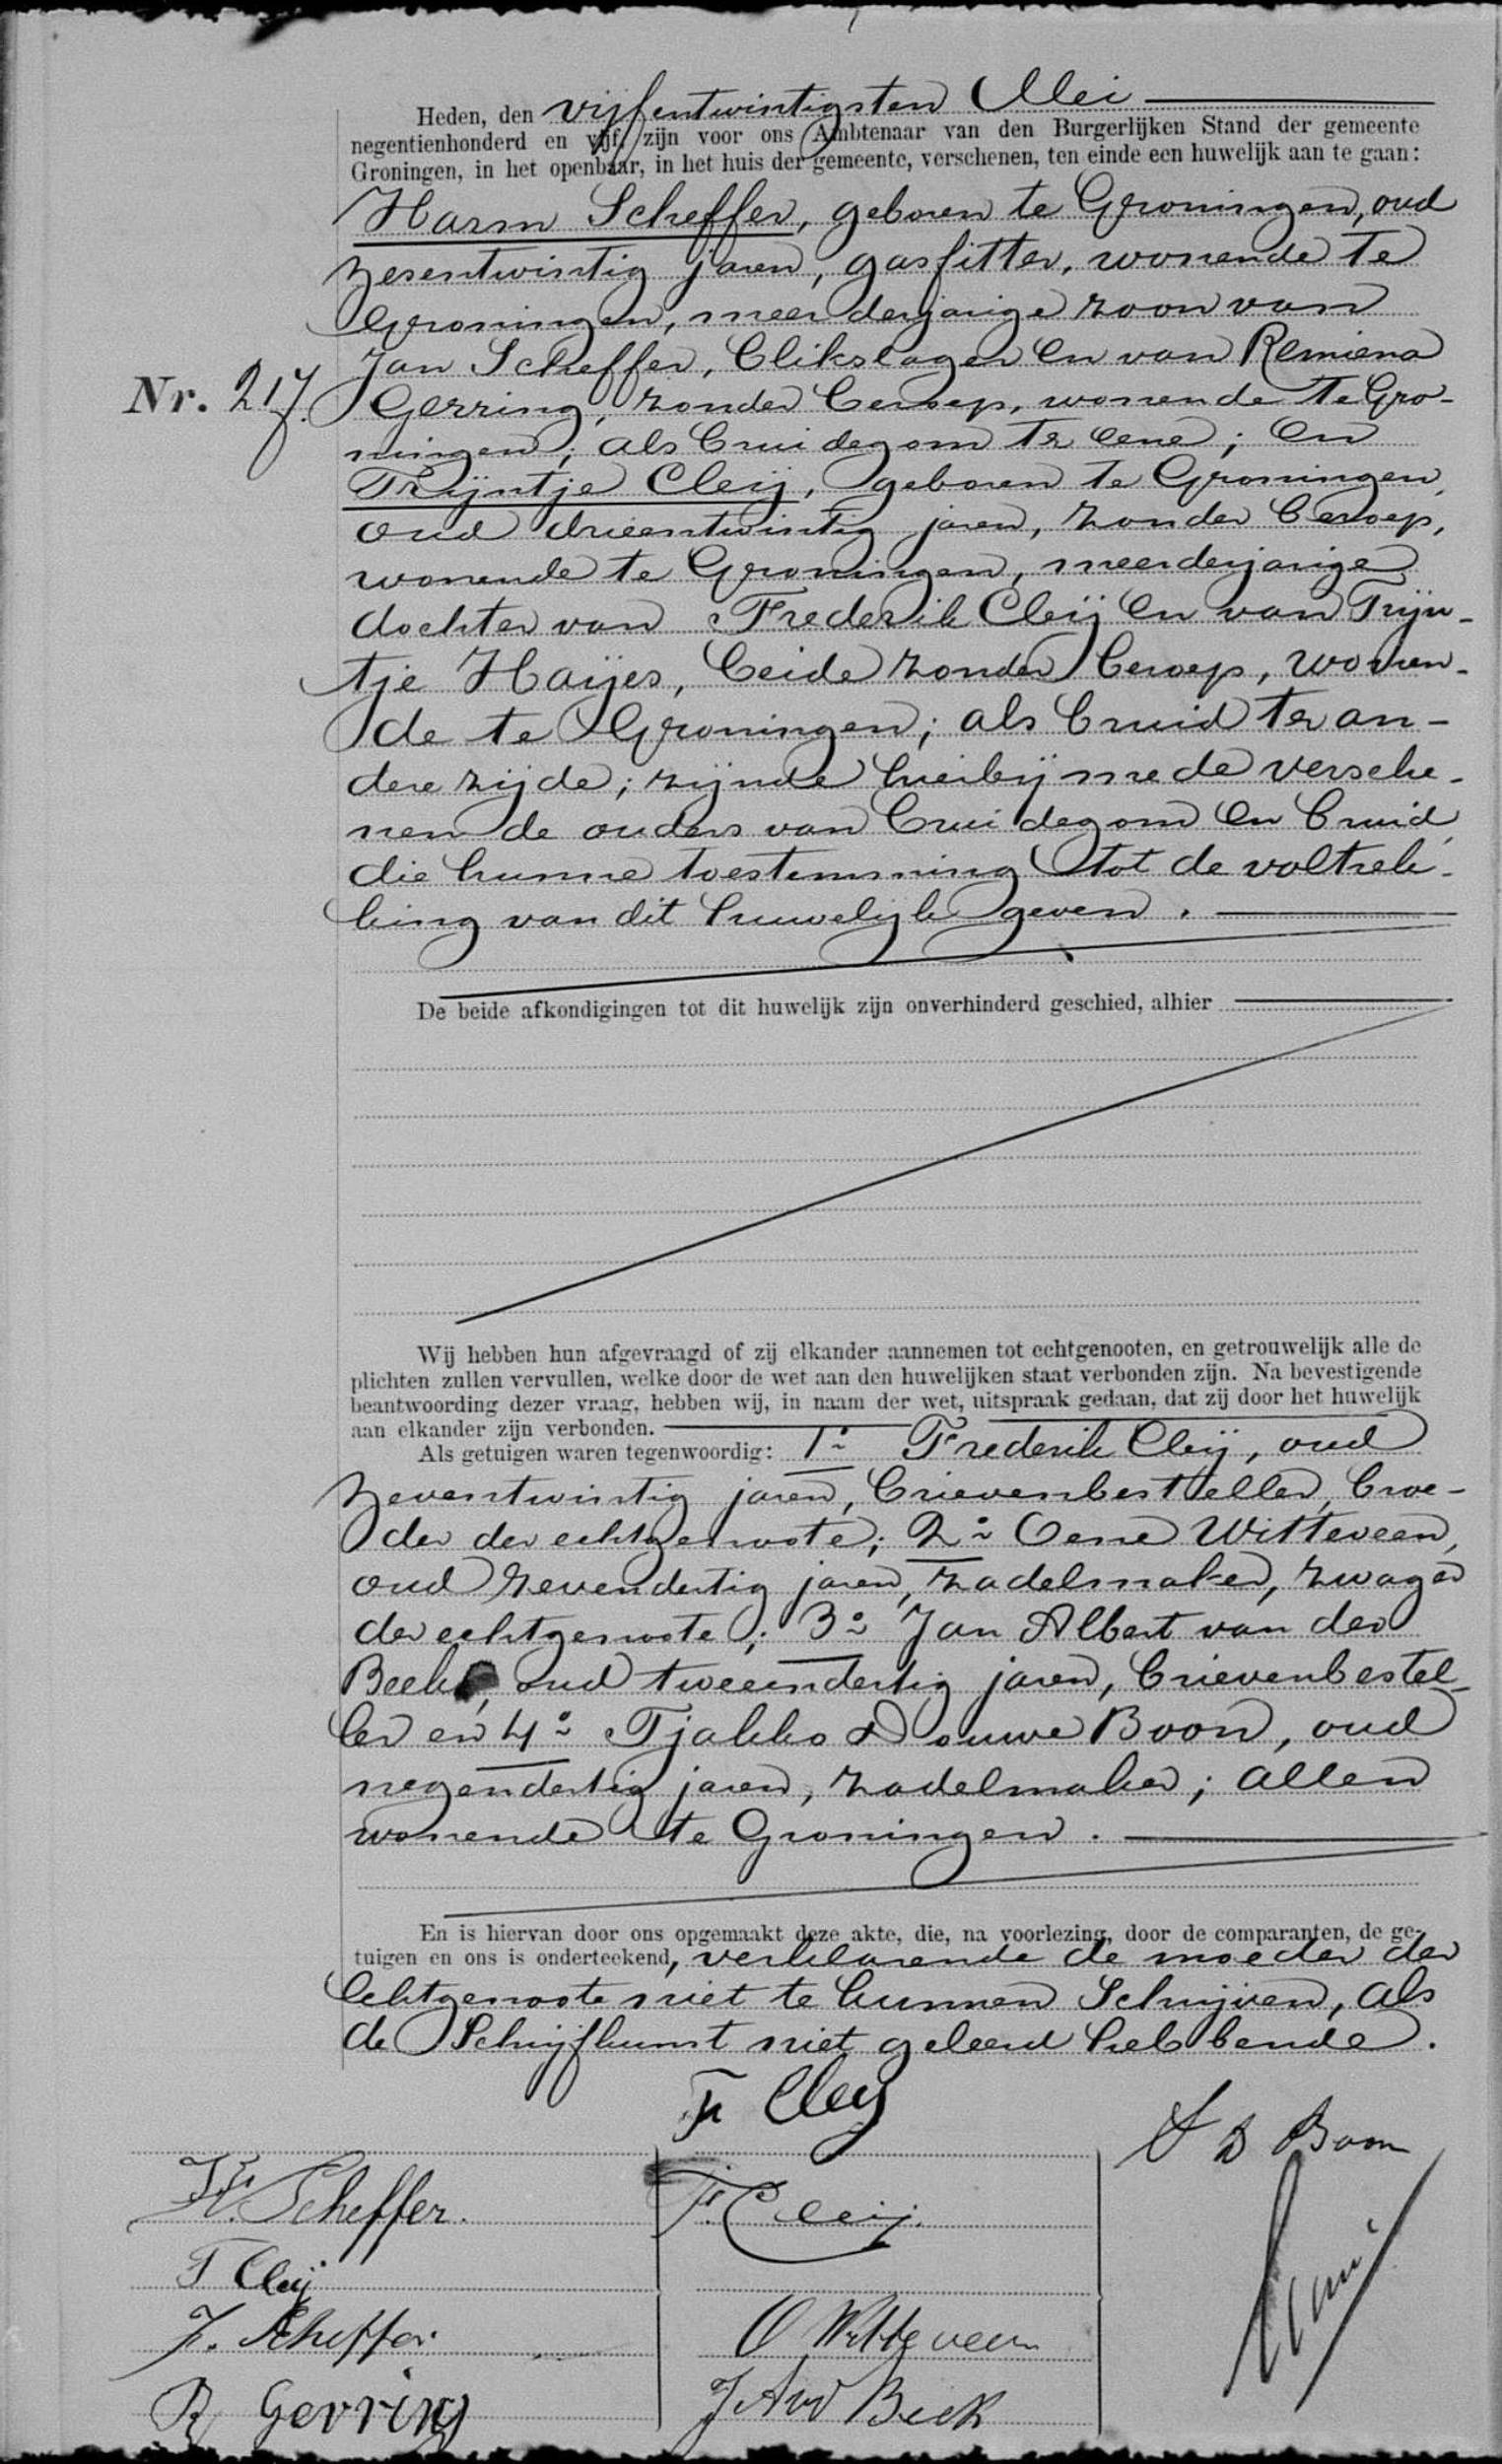 Heden, den vijfentwintigsten Mei
negentienhonderd en vijf, zijn voor ons Ambtenaar van den Burgerlijken Stand der gemeente
Groningen, in het openbaar, in het huis der gemeente, verschenen, ten einde een huwelijk aan te gaan:
Harm Scheffer, geboren te Groningen, oud
zesentwintig jaren, gasfitter, wonende te
Groningen, meerderjarige zoon van
Jan Scheffer, blikslager en van Remiena
Nr. 217. Gerring, zonder beroep, wonende te Gro-
ningen; als bruidegom ter eene; en
Trijntje Cleij, geboren te Groningen,
oud drieentwintig jaren, zonder beroep,
wonende te Groningen, meerderjarige
dochter van Frederik Cleij en van Trijn-
tje Haijes, beide zonder beroep, wonen-
de te Groningen; als bruid ter an-
dere zijde; zijnde hierbij mede versche-
nen de ouders van bruidegom en bruid,
die hunne toestemming tot de voltrek-
king van dit huwelijk geven.
De beide afkondigingen tot dit huwelijk zijn onverhinderd geschied, alhier
Wij hebben hun afgevraagd of zij elkander aannemen tot echtgenooten, en getrouwelijk alle de
plichten zullen vervullen, welke door de wet aan den huwelijken staat verbonden zijn. Na bevestigende
beantwoording dezer vraag, hebben wij, in naam der wet, uitspraak gedaan, dat zij door het huwelijk
aan elkander zijn verbonden.
Als getuigen waren tegenwoordig: 1º Frederik Cleij, oud
zeventwintig jaren, brievenbesteller, broe-
der der echtgenoote; 2º Oene Witteveen,
oud zevendertig jaren, zadelmaker, zwager
der echtgenoote; 3º Jan Albert van der
Beek, oud tweeendertig jaren, brievenbestel-
ler en 4º Tjakko Douwe Boon, oud
negendertig jaren, zadelmaker; allen
wonende te Groningen.
En is hiervan door ons opgemaakt deze akte, die, na voorlezing, door de comparanten, de ge-
tuigen en ons is onderteekend, verklarende de moeder der
echtgenoote niet te kunnen schrijven, als
de schrijfkunst niet geleerd hebbende.
F Cleij
D Boon
H. Scheffer.
F. Cleij.
T Cleij
J. Scheffer
O Witteveen
R Gerring
J A vd Beek